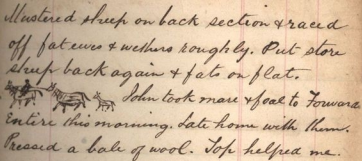 Mustered sheep on back section & raced
off fat ewes & wethers roughly. Put store
sheep back again & fats on flat.
John took mare & foal to Forward
Entire this morning. Late home with them.
Pressed a bale of wool. Top helped me.